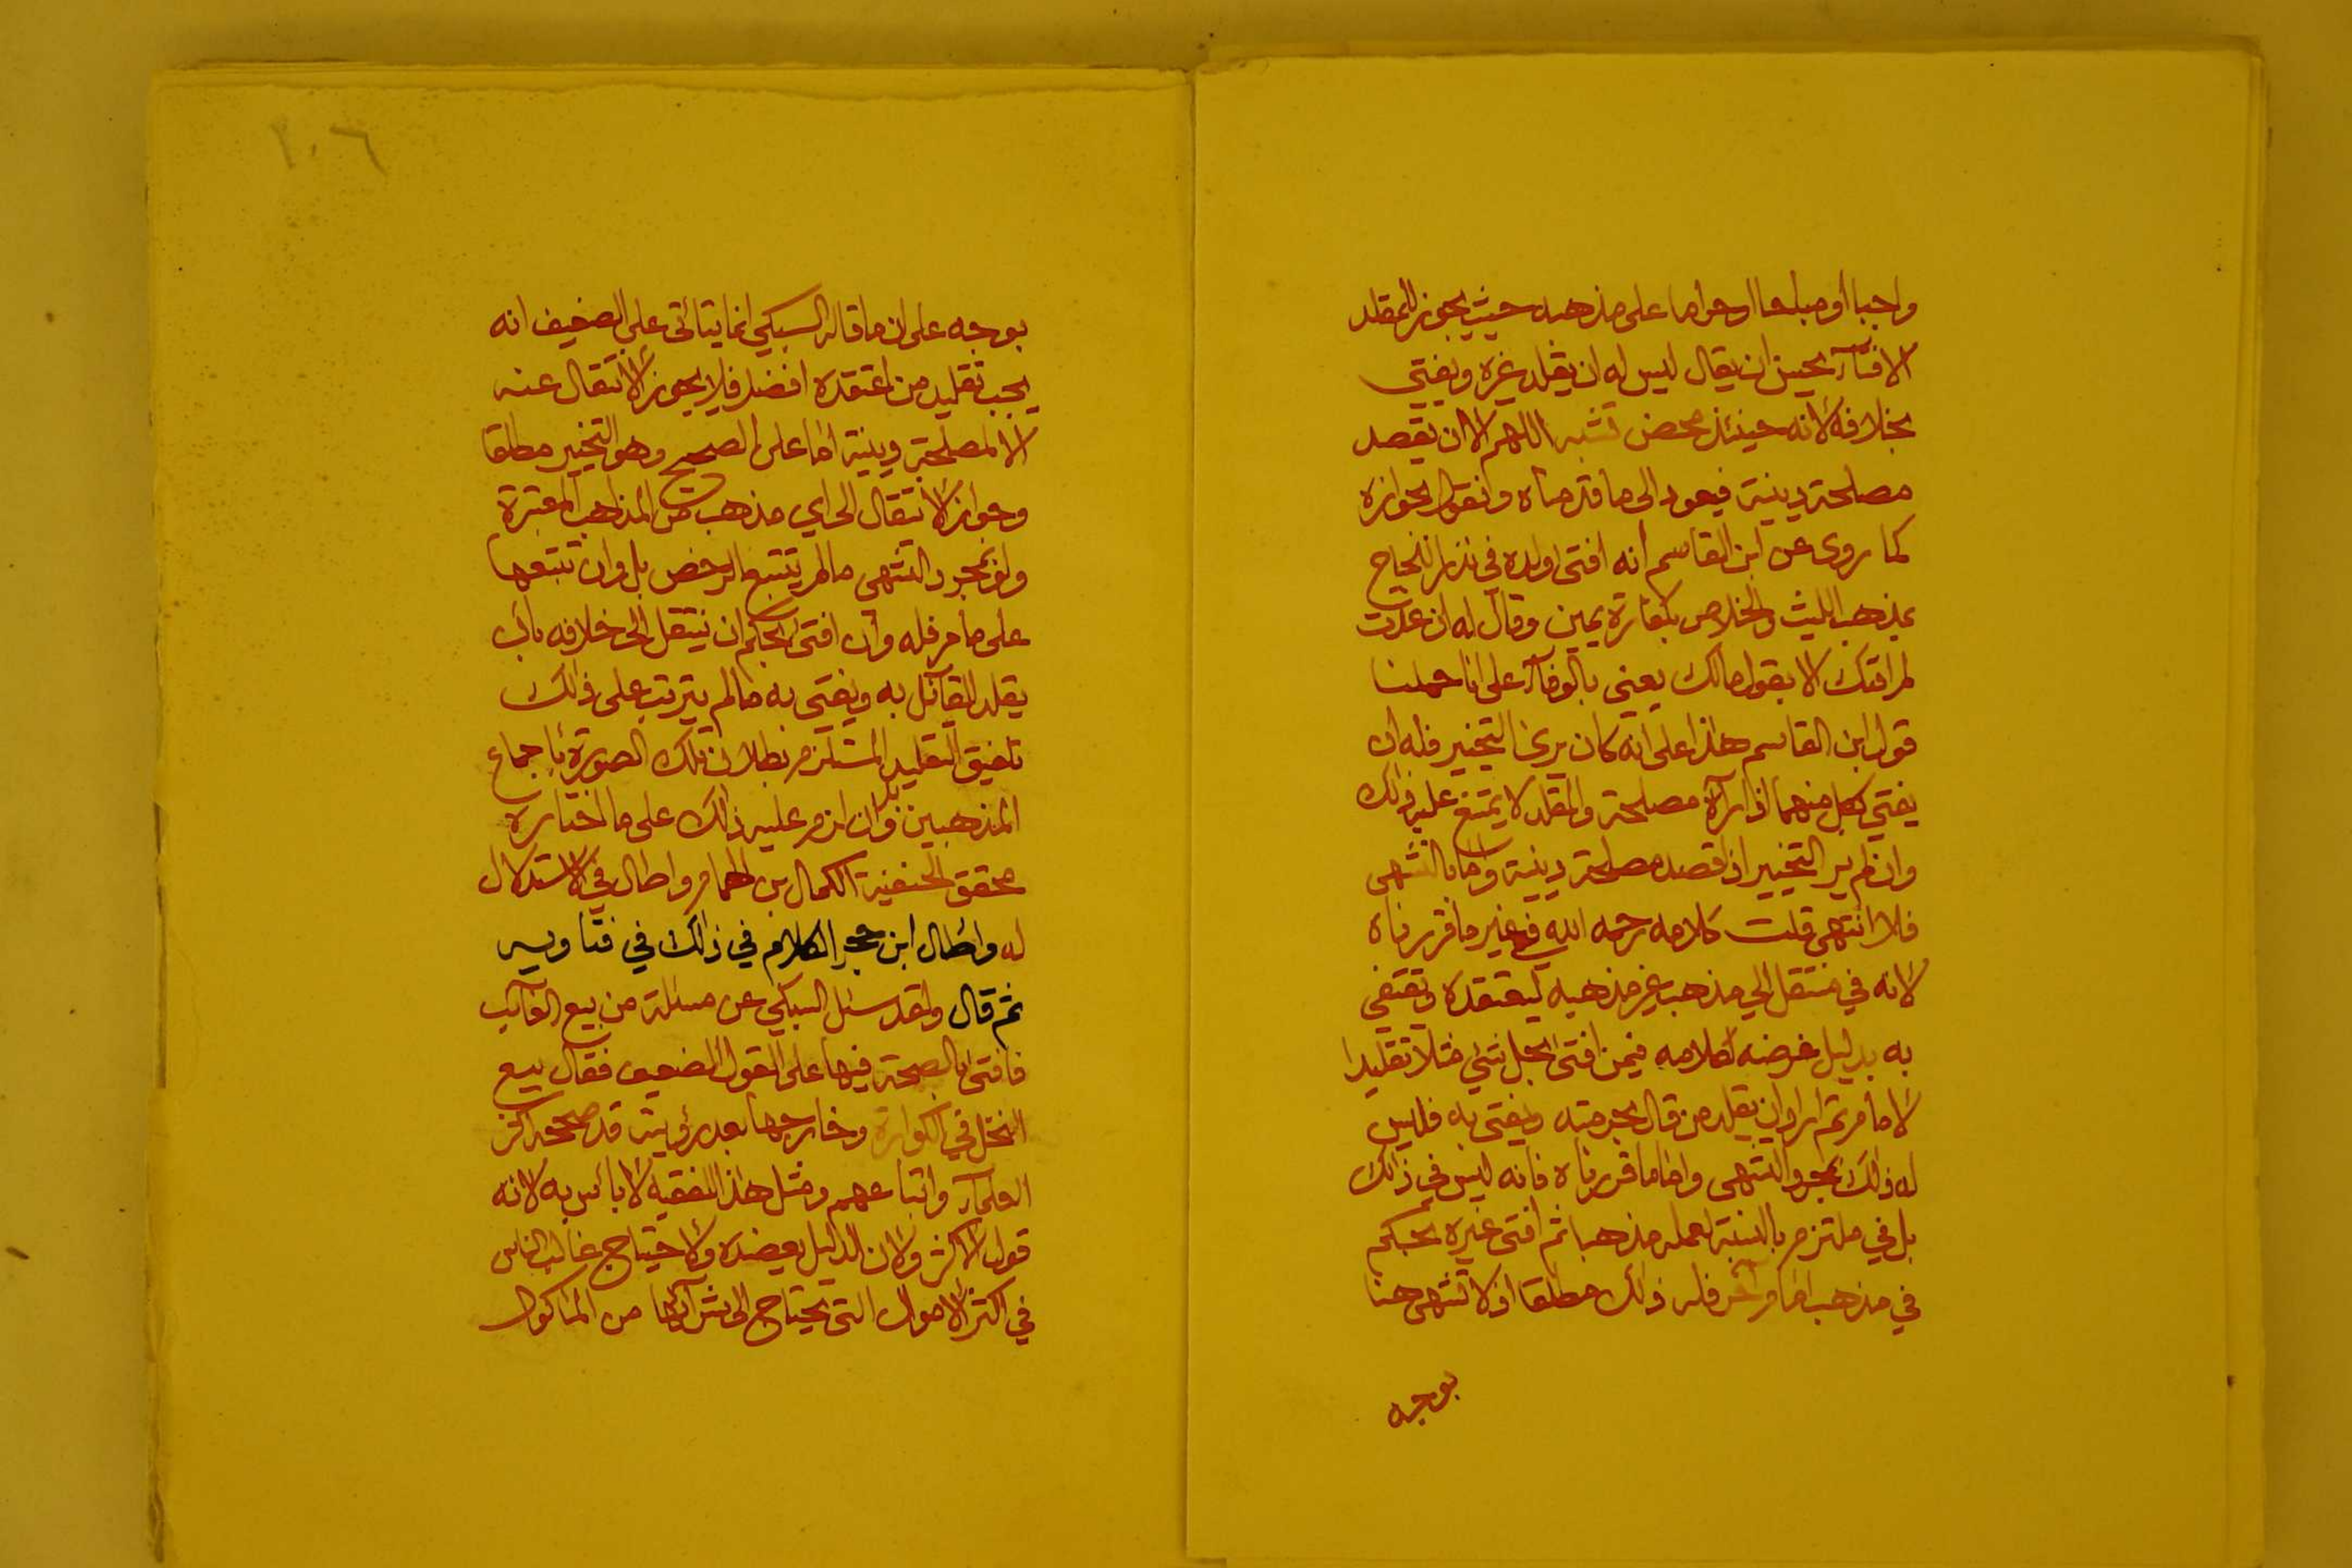 واجبا او مباحا او حراما على مذهبه حيث يجوز للمقلد
الافتاء يحسن ان يقال ليس له ان يقلد غيره ويفتي
بخلافه لانه حينئذ محض تشه اللهم الا ان يقصد
مصلحة دينية فيعود الى ما قدمناه ونقول بجوازه
كما روى عن ابن القاسم انه افتى ولده في نذر اللجاج
بمذهب الليث والخلاص بكفارة يمين وقال له ان عدت
لم افتك الا بقول مالك يعني بالوفاء على انا حملنا
قول ابن القاسم هذا على انه كان يرى التخيير فله ان
يفتي بكل منهما اذا رآه مصلحة والمقلد لا يمتنع عليه ذلك
وان لم ير التخيير اذا قصد مصلحة دينية واما بالتشهى
فلا انتهى قلت كلامه رحمه الله في غير ما قررناه
لانه في منتقل الى مذهب غير مذهبه ليعتقده ويفتي
به بدليل فرضه كلامه فيمن افتى بحل شئ مثلا تقليدا
لامام ثم اراد ان يقلد من قال بحرمته ويفتى به فليس
له ذلك بمجرد التشهى واما ما قررناه فانه ليس في ذلك
بل في ملتزم بالنسبة لعمله مذهبا ثم افتى غيره بحكم
في مذهب امام آخر فله ذلك مطلقا اذ لا تشهى هنا
بوجه
١٠٦
بوجه على ان ما قاله السبكي انما يتأتى على الضعيف انه
يجب تقليد من اعتقده افضل فلا يجوز الانتقال عنه
الا لمصلحة دينية اما على الصحيح وهو التخيير مطلقا
وجواز الانتقال الى اي مذهب من المذاهب المعتبرة
ولو بمجرد التشهى ما لم يتتبع الرخص بل وان تتبعها
على ما مر فله وان افتى بحكم ان ينتقل الى خلافه بان
يقلد القائل به ويفتى به ما لم يترتب على ذلك
تلفيق التقليد المستلزم بطلان تلك الصورة باجماع
المذهبين بل وان لزم عليه ذلك على ما اختاره
محقق الحنفية الكمال بن الهمام واطال في الاستدلال
له واطال ابن حجر الكلام في ذلك في فتاويه
ثم قال ولقد سئل السبكي عن مسئلة من بيع الغائب
فافتى بالصحة فيها على القول الضعيف فقال بيع
النحل في الكوارة وخارجها بعد رؤيته قد صححه اكثر
العلماء واتباعهم ومثل هذا للفقيه لا بأس به لانه
قول الاكثر ولان الدليل يعضده ولاحتياج غالب الناس
في اكثر الاموال التى يحتاج الى شرائها من المأكول